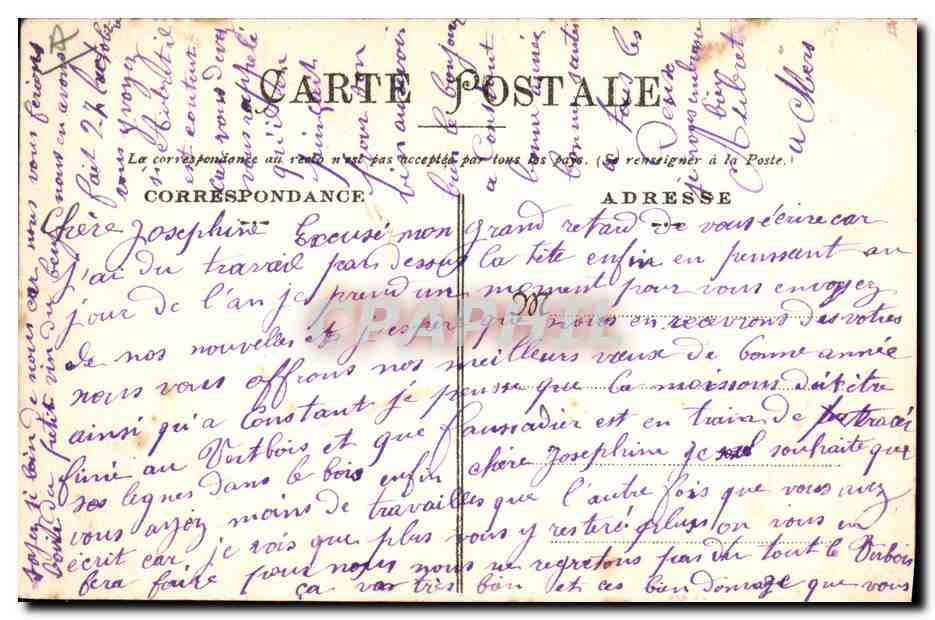 CARTE POSTALE
La correspondance au recto n'est pas acceptée par tous les pays. (Se renseigner à la Poste.)
CORRESPONDANCE
ADRESSE
M
CPAPHIL
Chère Josephine Excusé mon grand retard de vous écrire car
j'ai du travail par dessus la tête enfin en penssent au
jour de l'an je prend un moment pour vous envoyez
de nos nouvelles et j'esper que nous en recevrons des votres
nous vous offrons nos meilleurs vœux de bonne année
ainsi qu'a Constant je pensse que la moissons doit être
finie au Vertbois et que est en train de tracer
ses lignes dans le bois enfin chère Josephine je souhaite que
vous ayez moins de travailles que l'autre fois que vous avez
écrit car je vois que plus vous y resteré plus on vous en
fera faire pour nous nous ne regretons pas du tout le Verbois
ça va très bien et ces bien domage que vous
soyez si loin de nous car nous vous ferions
boire du petit vin du beu nous en avons
fait 24
vous voyez
si
est content
car vous devez
vous rappelé
qu'il en
pour en
bien le bonjour
a Constant
bonne année
bonne santé
a tous les
Deux
je vous embrasse
bien
a Mers